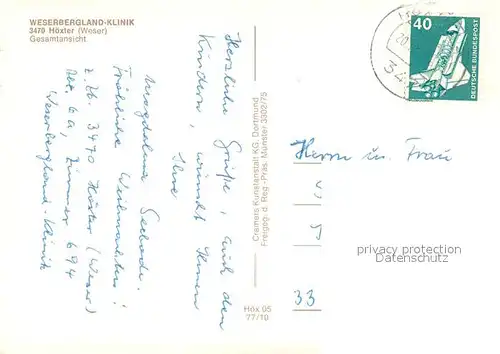 WESERBERGLAND-KLINIK
3470 Höxter (Weser)
Gesamtansicht
Herzliche Grüße, auch den
Kindern, wünscht Ihnen
Ihre
Magdalena
Fröhliche Weihnachten!
z. Zt. 3470 Höxter (Weser)
Abt. 6a, Zimmer 694
Weserbergland-Klinik
Cramers Kunstanstalt KG, Dortmund
Freigeg. d. Reg.-Präs. Münster 3302/75
Höx 05
77/10
40
DEUTSCHE BUNDESPOST
20.
34
Herrn u. Frau
33
privacy protection
watermark